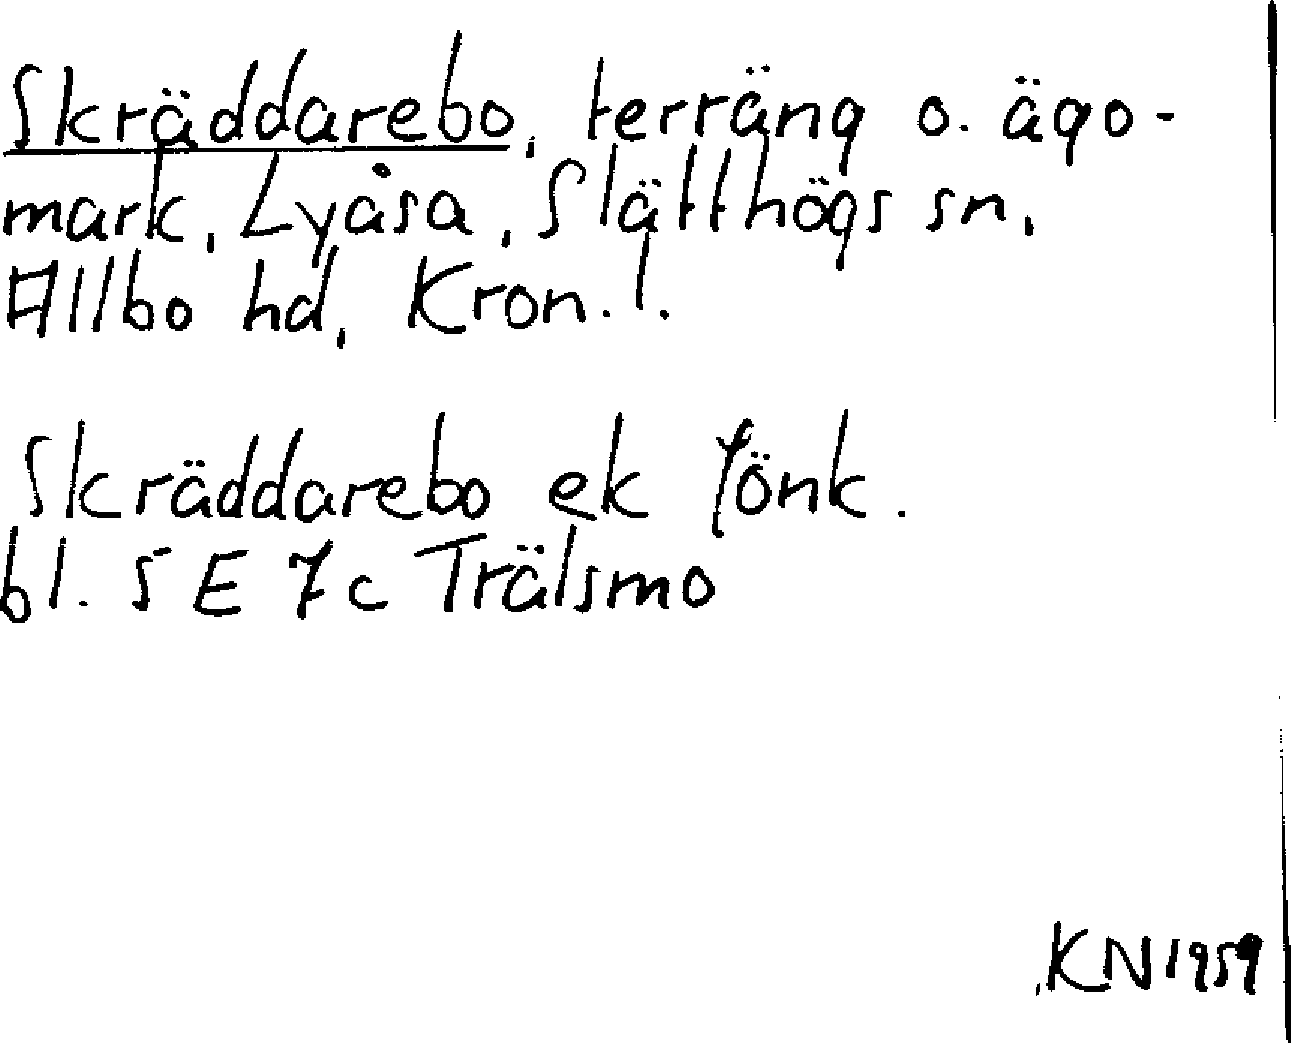 Skräddarebo, terräng o. ägo-
mark, Lyåsa, Slätthögs sn,
Allbo hd, Kron. l.
Skräddarebo ek fönk.
bl. 5 E 7c Trälsmo
KN 1959